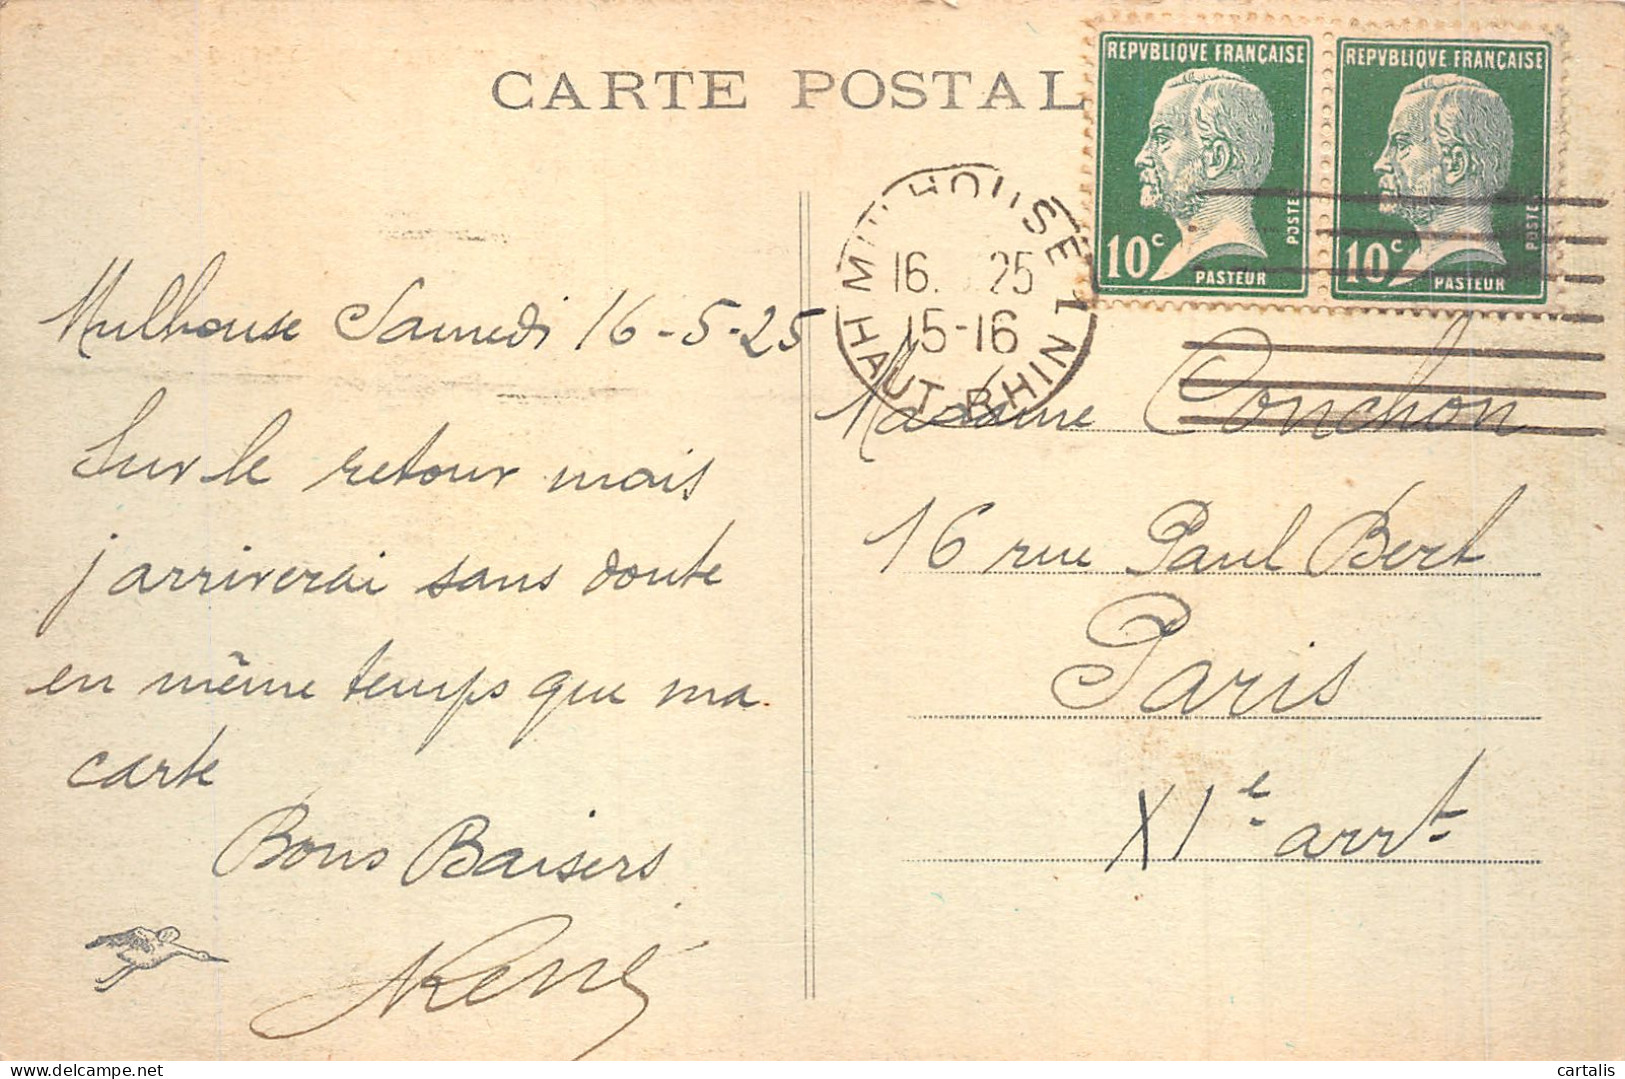 CARTE POSTAL
REPVBLIQVE FRANÇAISE
10 c
POSTES
PASTEUR
REPVBLIQVE FRANÇAISE
10 c
POSTES
PASTEUR
MULHOUSE 1
16. 25
15-16
HAUT RHIN
Mulhouse Samedi 16-5-25
Sur le retour mais
j'arriverai sans doute
en même temps que ma
carte
Bons Baisers
René
Madame Conchon
16 rue Paul Bert
Paris
XIe arrt
cartalis